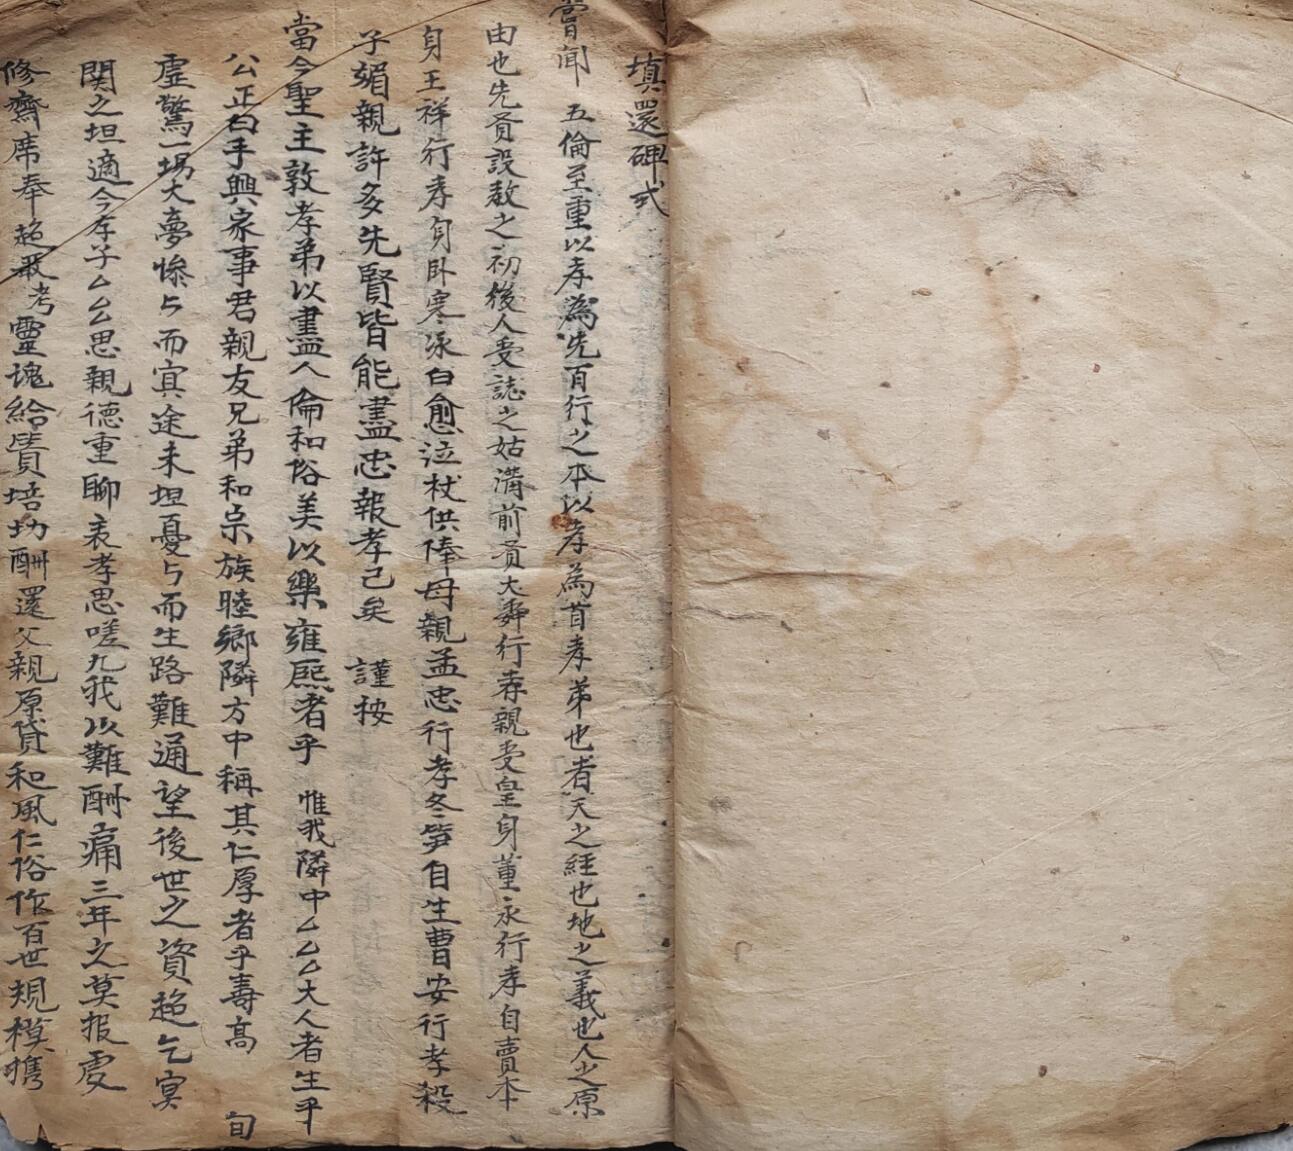 填還碑式
嘗闻 五倫至重以孝為先百行之本以孝為首孝弟也者天之經也地之義也人之原
由也先賢設教之初後人受誌之姑溝前賢大舜行孝親受皇身董永行孝自賣本
身王祥行孝身卧寒氷白愈泣杖供俸母親孟忠行孝冬笋自生曹安行孝殺
子媚親許多先賢皆能盡忠報孝己矣 謹按
當今聖主敦孝弟以盡人倫和俗美以樂雍熙者乎 惟我隣中厶厶厶大人者生乎
公正白手興家事君親友兄弟和宗族睦鄉隣方中稱其仁厚者乎壽高 旬
虛驚一場大夢惨与而寘途未坦憂与而生路難通望後世之資超乞冥
関之坦適今存子厶厶思親德重聊表孝思嗟九我以難酬痛三年之莫报虔
修齋席奉超最考靈魂給賷培功酬還父親原貸和風仁俗作百世規模携